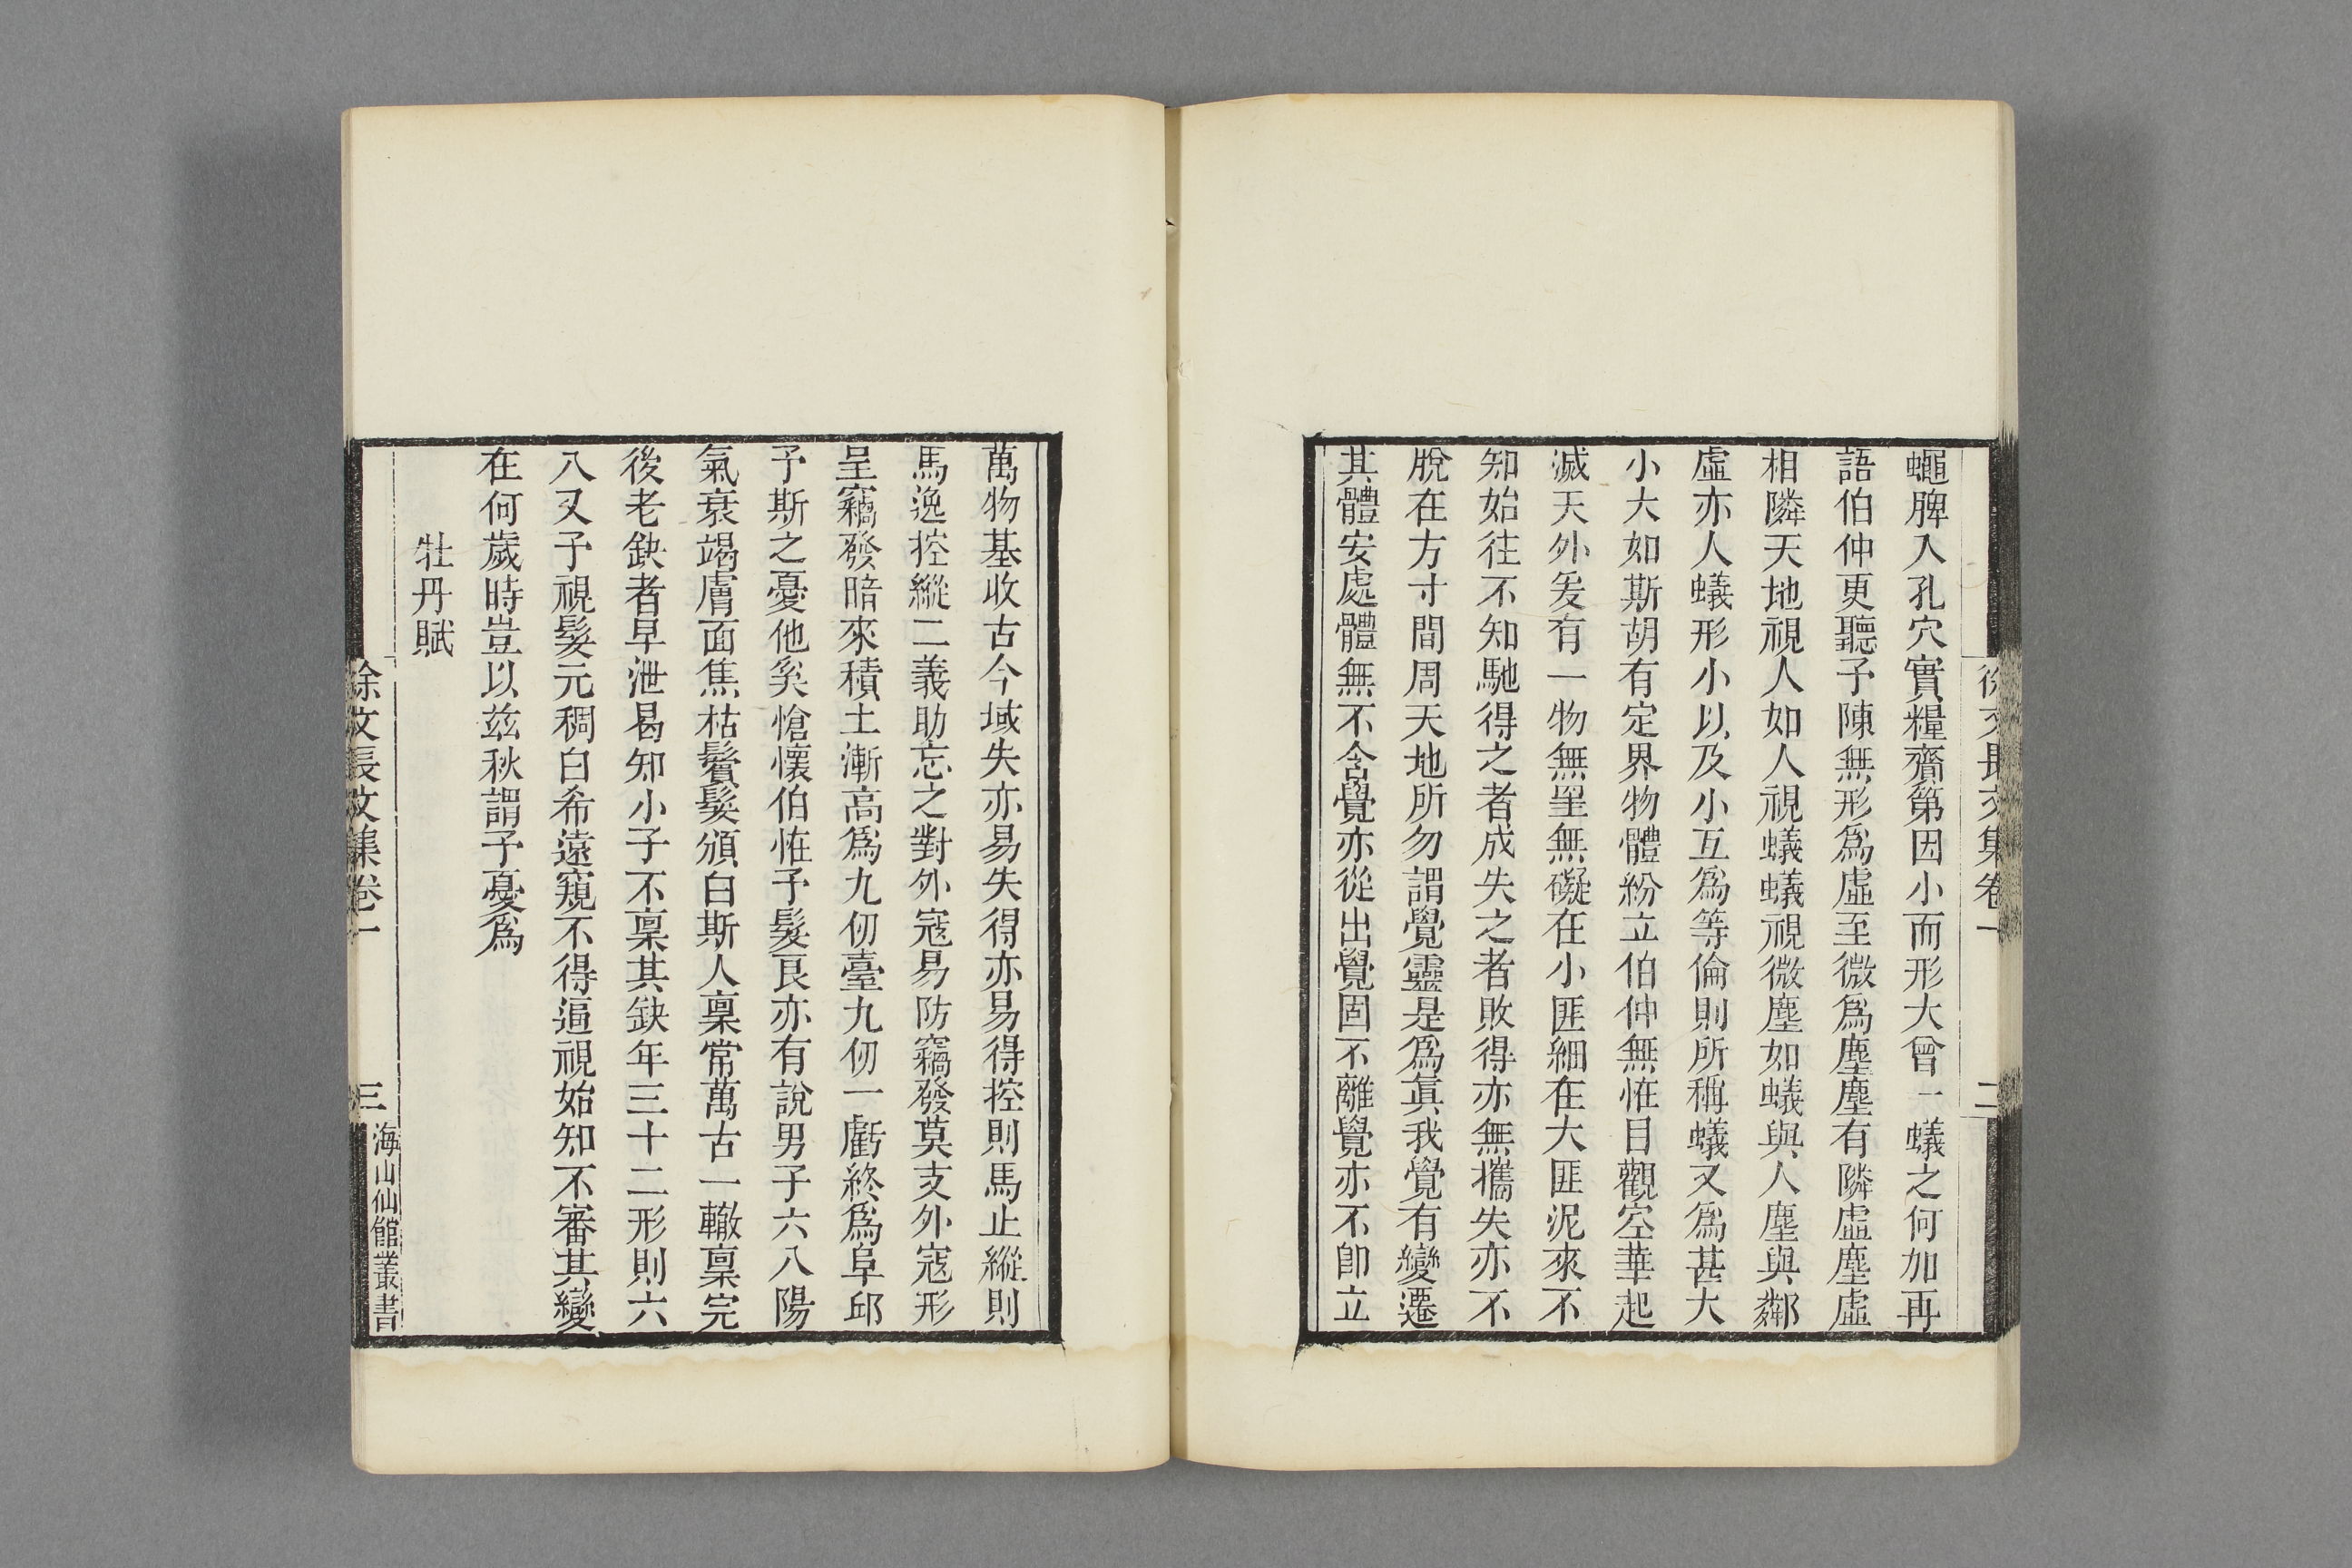 徐文長文集卷一
二
蠅脾入孔穴實糧齊第因小而形大曾一蟻之何加再
語伯仲更聽予陳無形爲虛至微爲塵塵有隣虛塵虛
相隣天地視人如人視蟻蟻視微塵如蟻與人塵與鄰
虛亦人蟻形小以及小互爲等倫則所稱蟻又爲甚大
小大如斯胡有定界物體紛立伯仲無恠目觀空華起
滅天外爰有一物無罣無礙在小匪細在大匪泥來不
知始往不知馳得之者成失之者敗得亦無攜失亦不
脫在方寸間周天地所勿謂覺靈是爲眞我覺有變遷
其體安處體無不含覺亦從出覺固不離覺亦不卽立
萬物基收古今域失亦易失得亦易得控則馬止縱則
馬逸控縱二義助忘之對外寇易防竊發莫支外寇形
呈竊發暗來積土漸高爲九仞臺九仞一虧終爲阜邱
予斯之憂他奚愴懷伯恠予髮良亦有說男子六八陽
氣衰竭膚面焦枯鬢髮頒白斯人稟常萬古一轍稟完
後老缺者早泄曷知小子不稟其缺年三十二形則六
八又予視髮元稠白希遠窺不得逼視始知不審其變
在何歲時豈以茲秋謂予憂爲
牡丹賦
徐文長文集卷一
三
海山仙館叢書